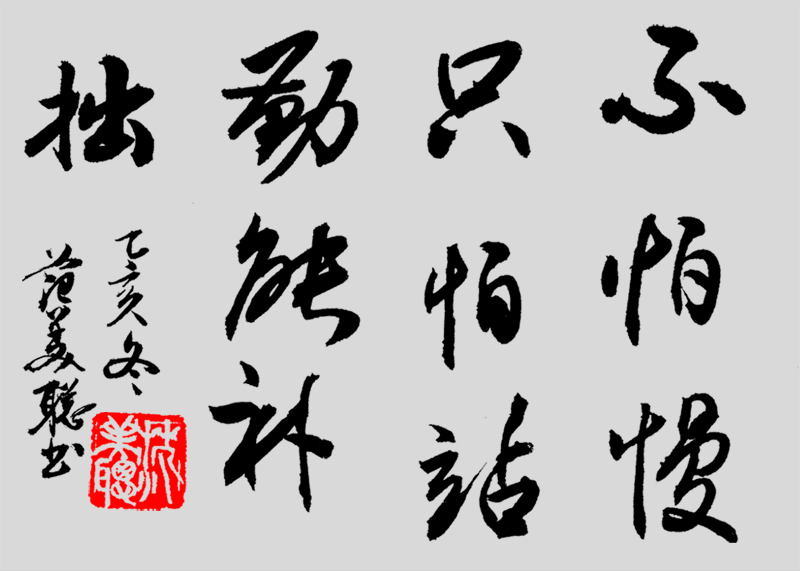 不怕慢
只怕站
勤能补
拙
乙亥冬
范美聪书
范美聪